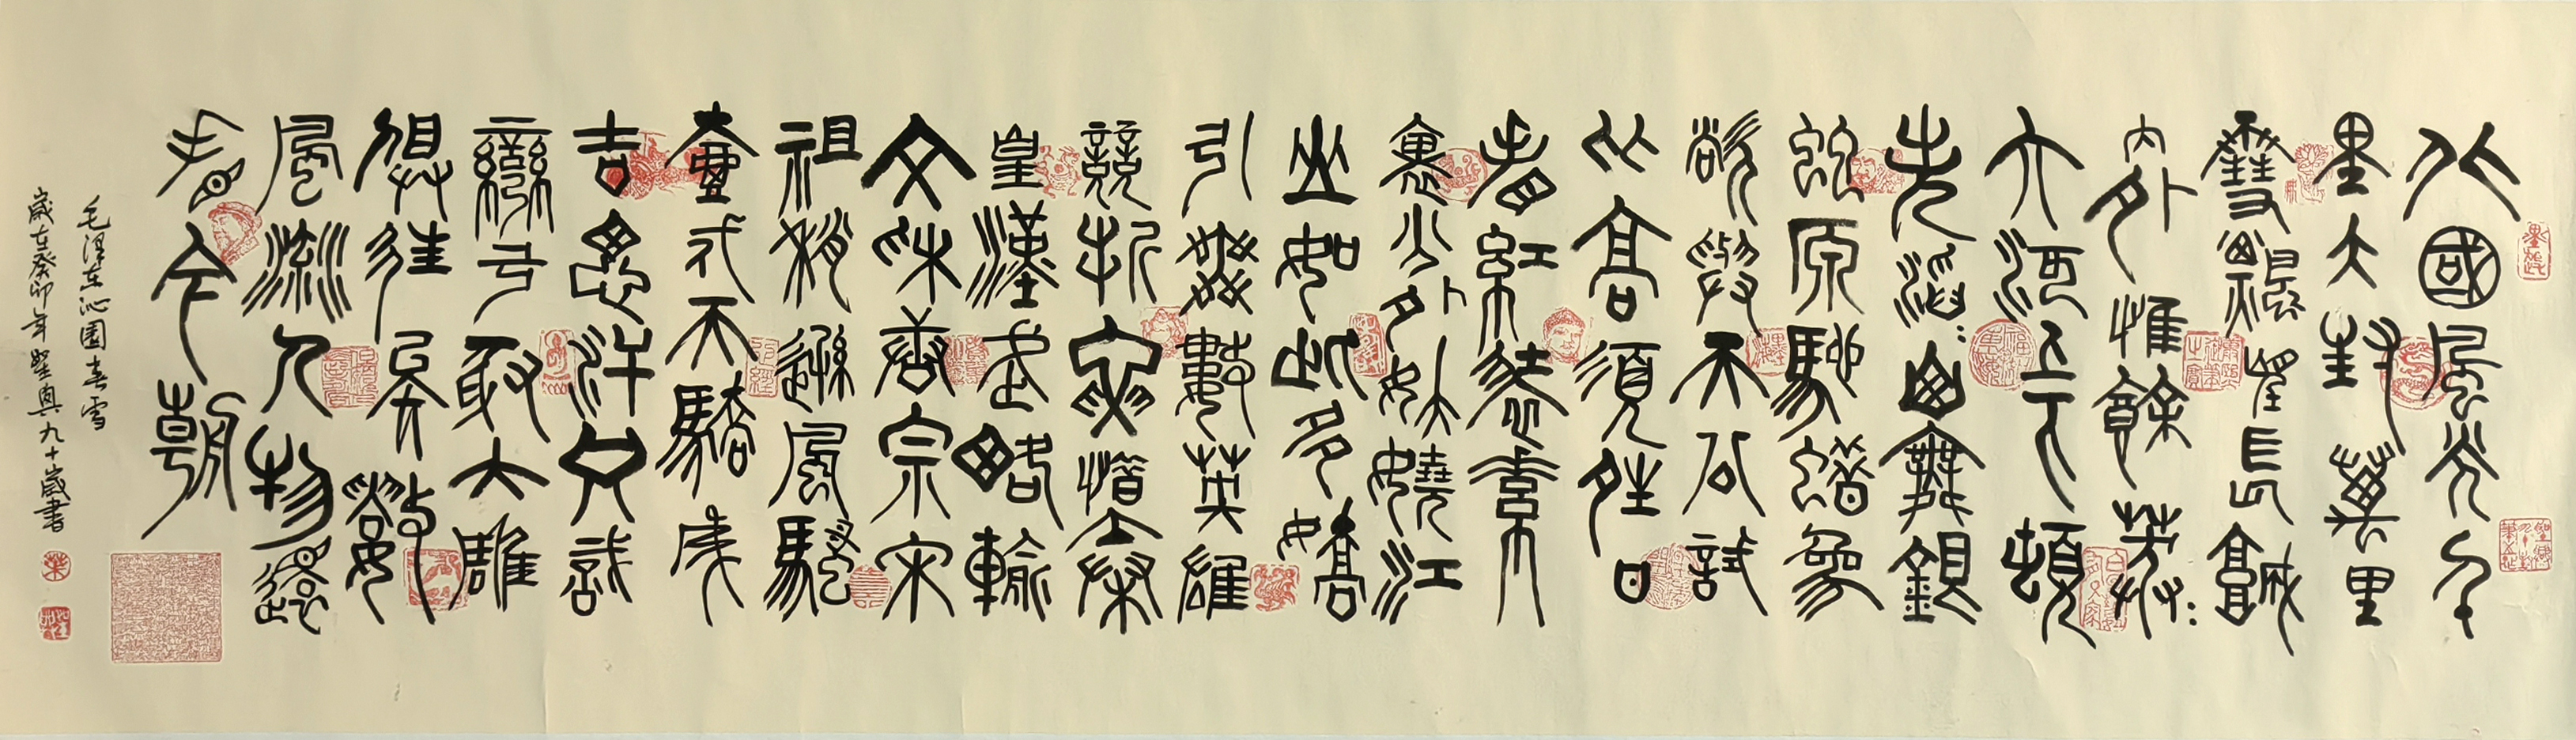 北國風光千
里冰封萬里
雪飄望長城
内外惟餘莽:
大河上下頓
失滔:山舞銀
蛇原馳蠟象
欲與天公試
比高須晴日
看紅裝素
裹分外妖嬈江
山如此多嬌
引無數英雄
競折腰惜秦
皇漢武略輸
文采唐宗宋
祖稍遜風騷
臺弌天驕成
吉思汗只識
彎弓射大雕
俱往矣數
風流人物還
看今朝
毛澤東沁園春雪
歲在癸卯年九十歲書